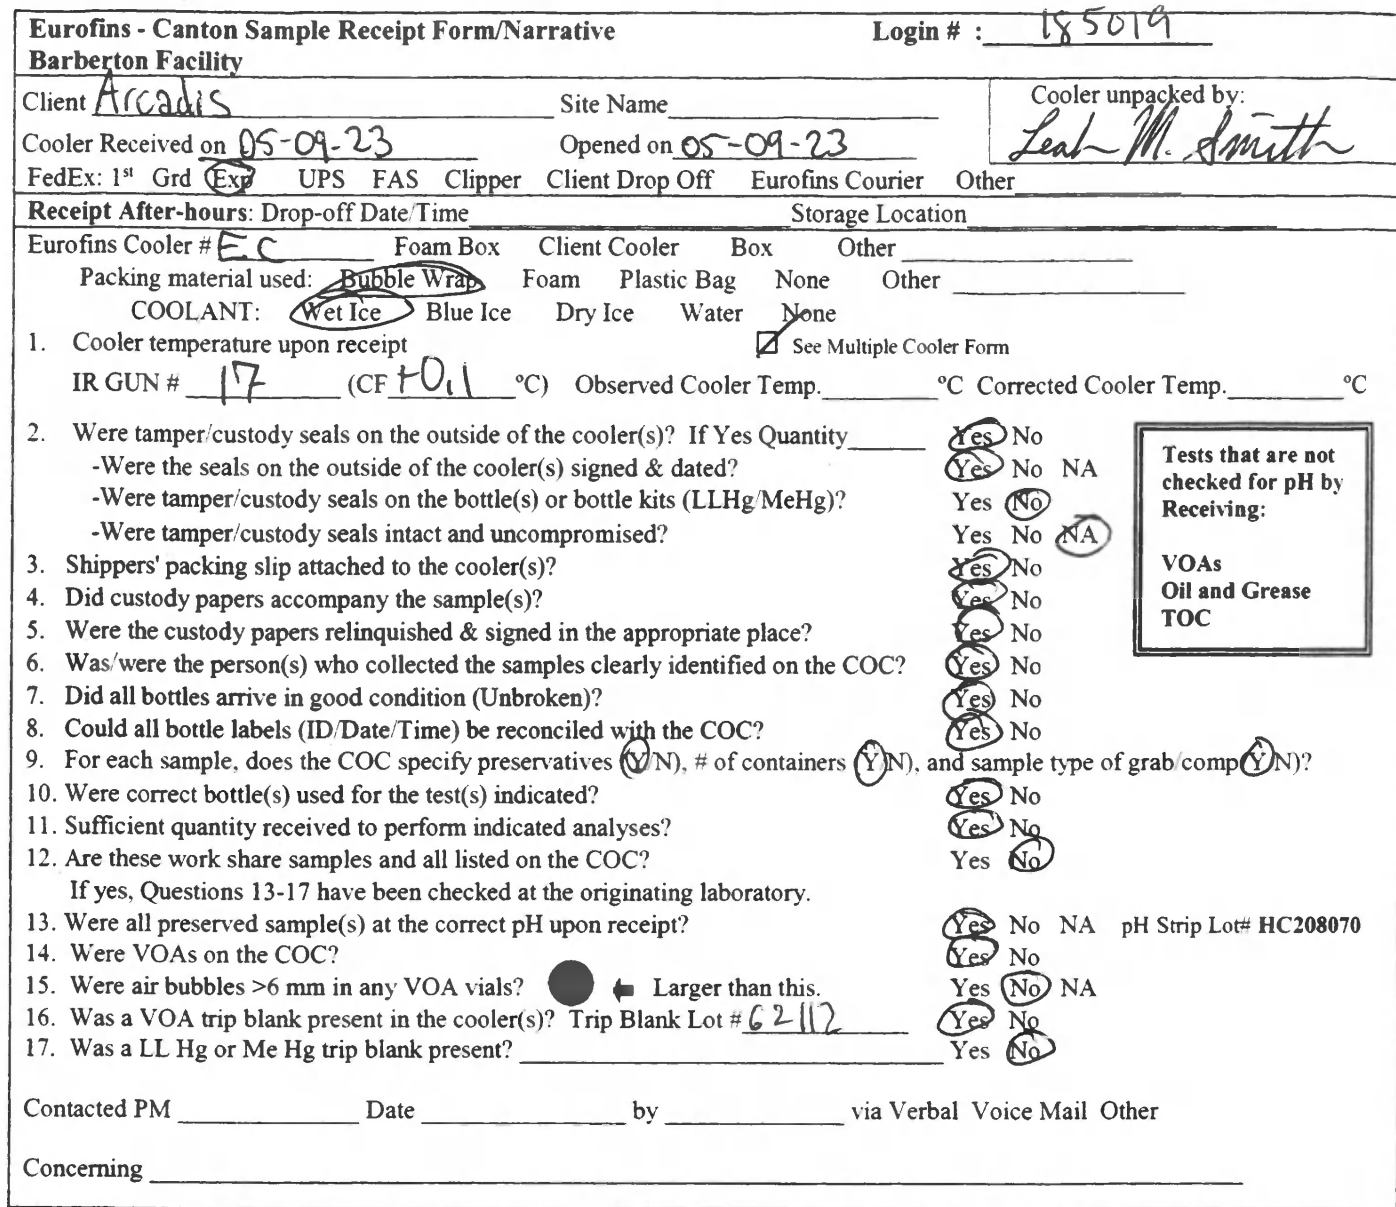 Eurofins - Canton Sample Receipt Form/Narrative Login # : 185019
Barberton Facility
Client Arcadis Site Name Cooler unpacked by:
Leah M. Smith
Cooler Received on 05-09-23 Opened on 05-09-23
FedEx: 1st Grd Exp UPS FAS Clipper Client Drop Off Eurofins Courier Other
Receipt After-hours: Drop-off Date/Time Storage Location
Eurofins Cooler # EC Foam Box Client Cooler Box Other
Packing material used: Bubble Wrap Foam Plastic Bag None Other
COOLANT: Wet Ice Blue Ice Dry Ice Water None
1. Cooler temperature upon receipt See Multiple Cooler Form
IR GUN # 17 (CF +0.1 °C) Observed Cooler Temp. °C Corrected Cooler Temp. °C
2. Were tamper/custody seals on the outside of the cooler(s)? If Yes Quantity Yes No
-Were the seals on the outside of the cooler(s) signed & dated? Yes No NA
-Were tamper/custody seals on the bottle(s) or bottle kits (LLHg/MeHg)? Yes No
-Were tamper/custody seals intact and uncompromised? Yes No NA
3. Shippers' packing slip attached to the cooler(s)? Yes No
4. Did custody papers accompany the sample(s)? Yes No
5. Were the custody papers relinquished & signed in the appropriate place? Yes No
6. Was/were the person(s) who collected the samples clearly identified on the COC? Yes No
7. Did all bottles arrive in good condition (Unbroken)? Yes No
8. Could all bottle labels (ID/Date/Time) be reconciled with the COC? Yes No
Tests that are not
checked for pH by
Receiving:
VOAs
Oil and Grease
TOC
9. For each sample, does the COC specify preservatives (Y/N), # of containers (Y/N), and sample type of grab/comp(Y/N)?
10. Were correct bottle(s) used for the test(s) indicated? Yes No
11. Sufficient quantity received to perform indicated analyses? Yes No
12. Are these work share samples and all listed on the COC? Yes No
If yes, Questions 13-17 have been checked at the originating laboratory.
13. Were all preserved sample(s) at the correct pH upon receipt? Yes No NA pH Strip Lot# HC208070
14. Were VOAs on the COC? Yes No
15. Were air bubbles >6 mm in any VOA vials? Larger than this. Yes No NA
16. Was a VOA trip blank present in the cooler(s)? Trip Blank Lot # 62112 Yes No
17. Was a LL Hg or Me Hg trip blank present? Yes No
Contacted PM Date by via Verbal Voice Mail Other
Concerning